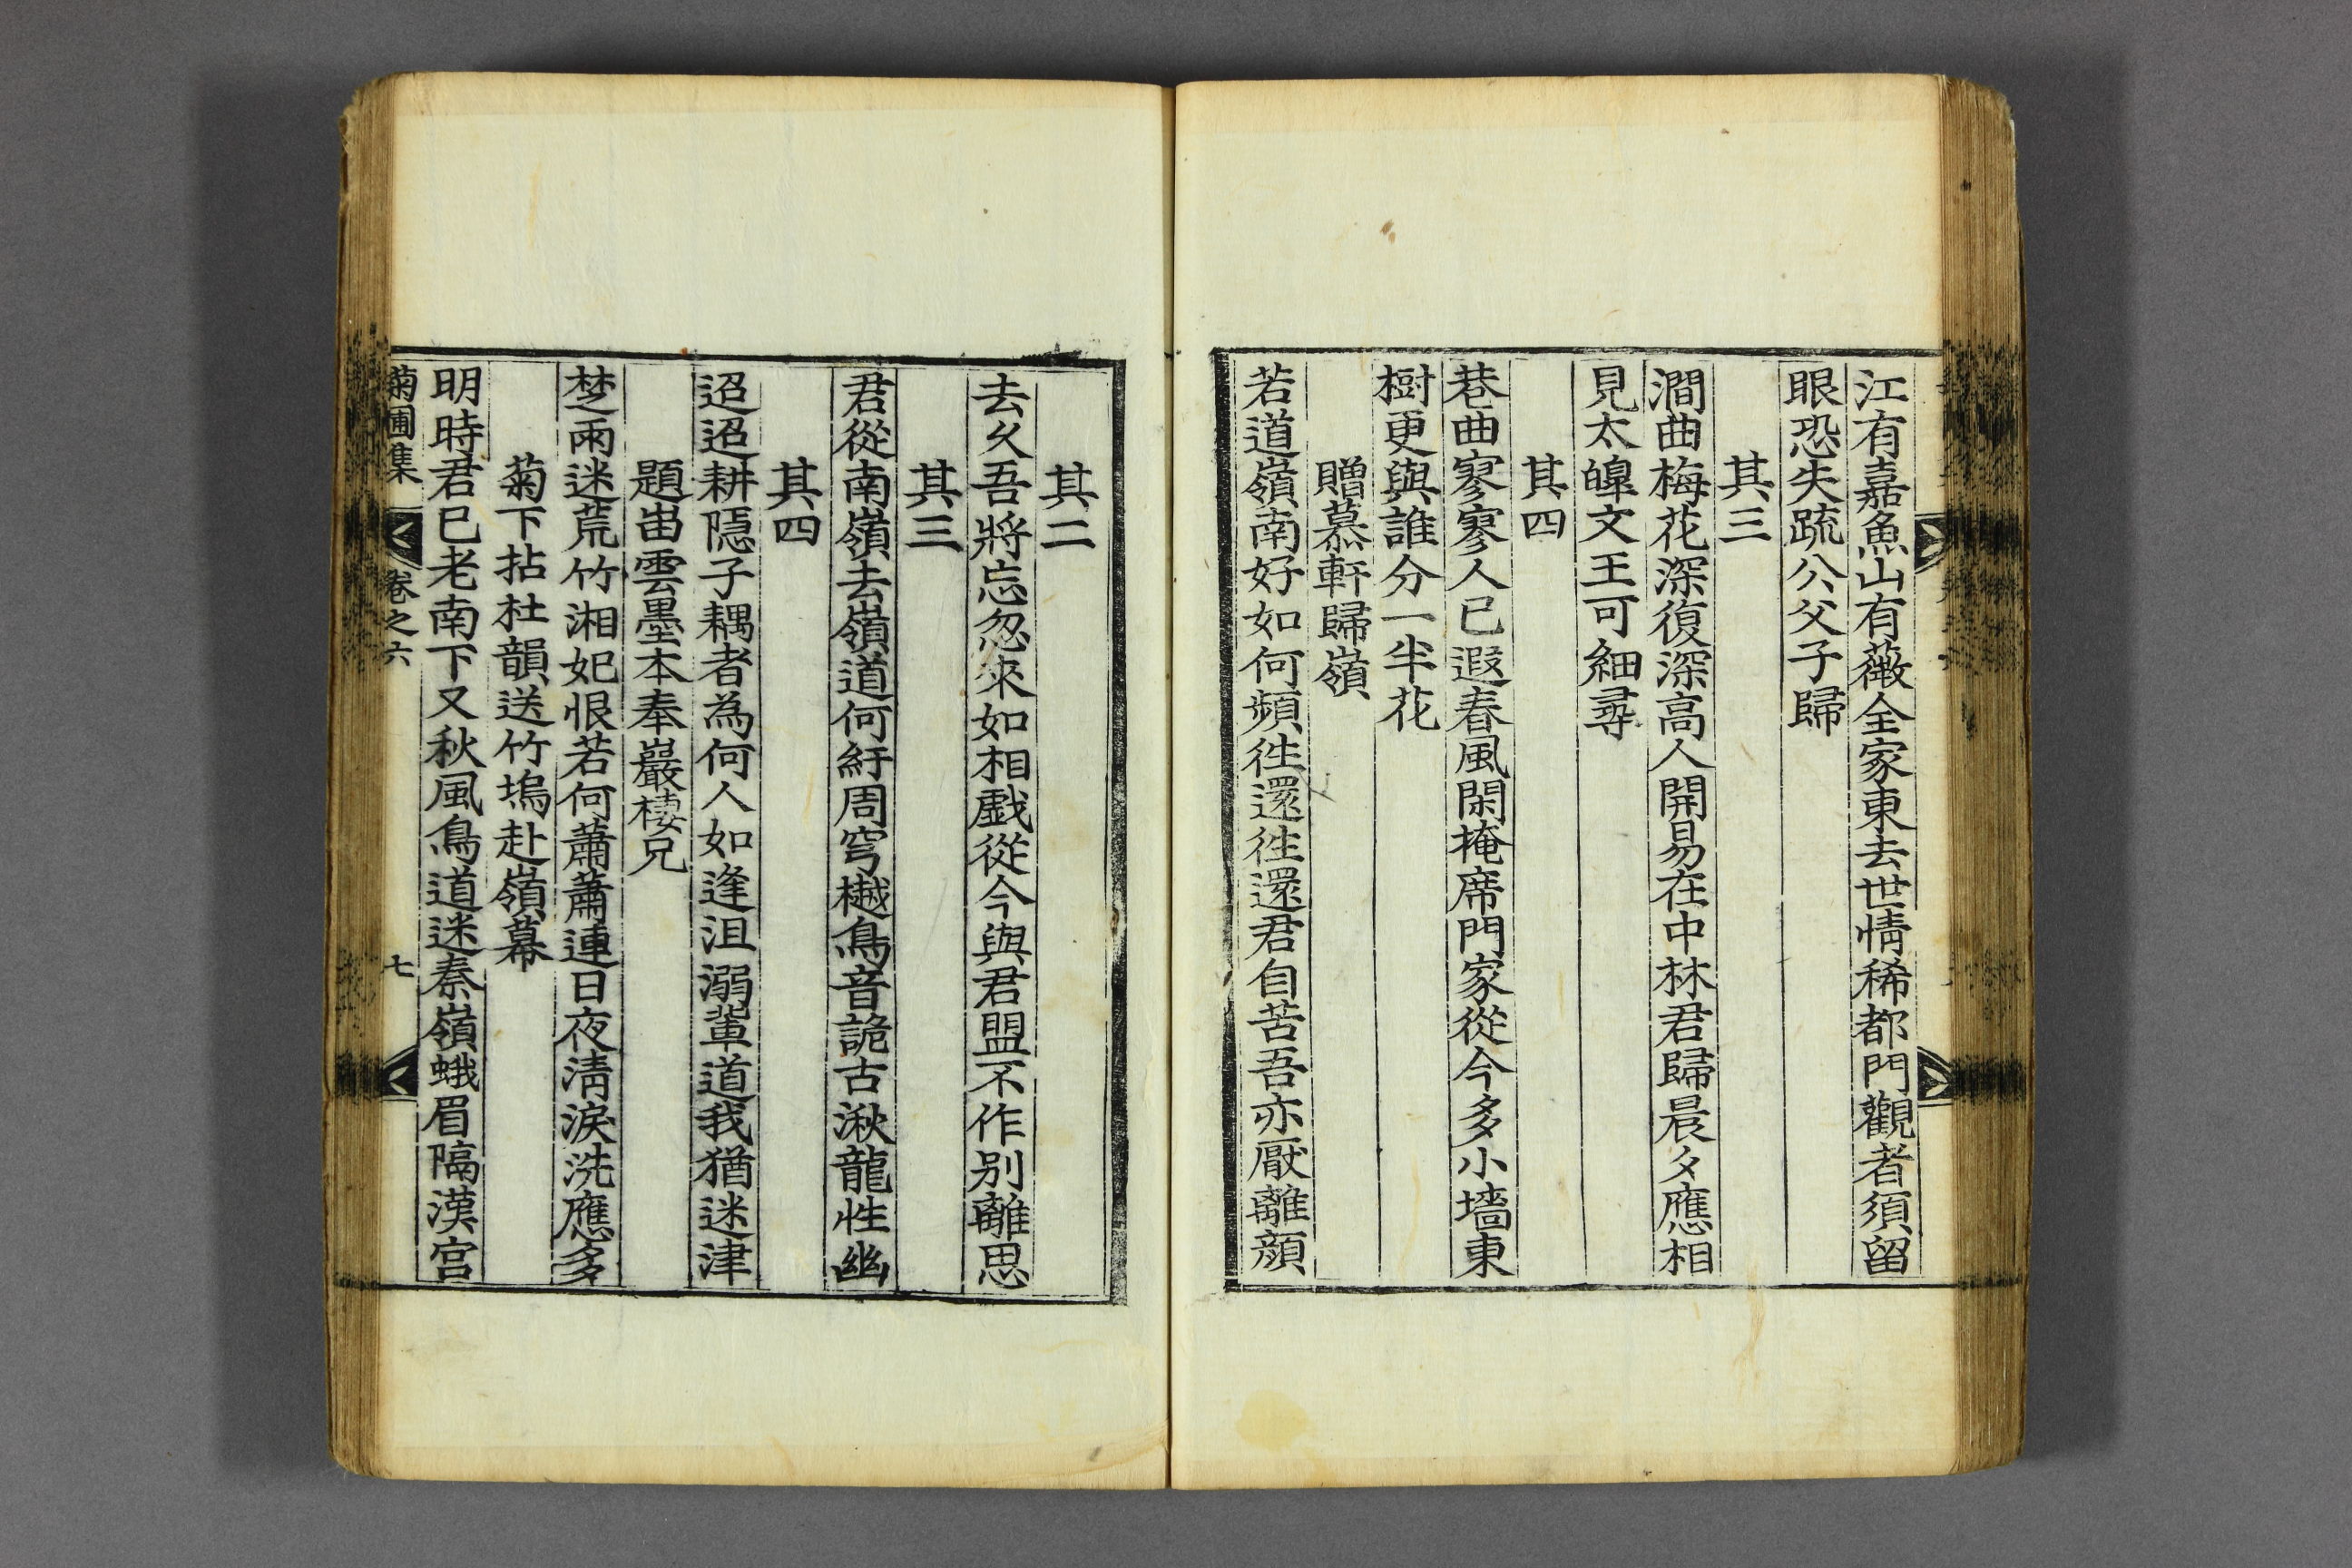 江有嘉魚山有薇全家東去世情稀都門觀者須留
眼恐失疏公父子歸
其三
澗曲梅花深復深高人開易在中林君歸晨夕應相
見太皥文王可細尋
其四
巷曲寥寥人已遐春風閑掩席門家從今多小墻東
樹更與誰分一半花
贈慕軒歸嶺
若道嶺南好如何頻徃還徃還君自苦吾亦厭離顔
其二
去久吾將忘忽來如相戱從今與君盟不作別離思
其三
君從南嶺去嶺道何紆周穹樾鳥音詭古湫龍性幽
其四
迢迢耕隱子耦者為何人如逢沮溺輩道我猶迷津
題凷雲墨本奉巖棲兄
楚雨迷荒竹湘妃恨若何蕭蕭連日夜淸淚洗應多
菊下拈杜韻送竹塢赴嶺幕
明時君已老南下又秋風鳥道迷秦嶺蛾眉隔漢宮
菊圃集 卷之六 七